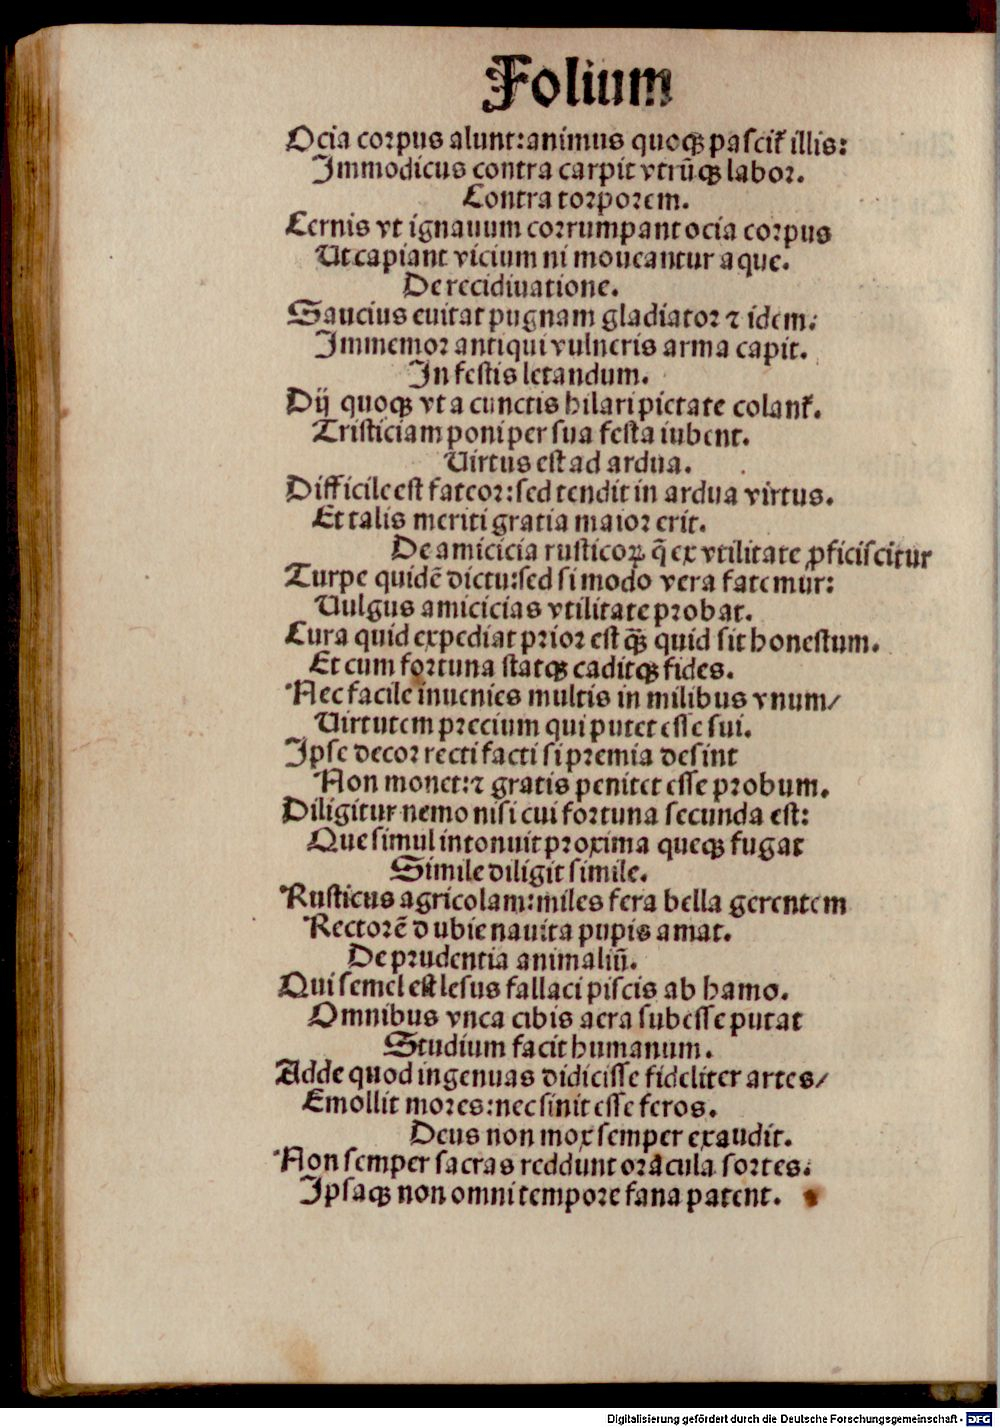 Folium
Ocia corpus alunt:animus quoqꝫ pascit᷑ illis:
Immodicus contra carpit vtrūqꝫ labor.
Contra torporem.
Cernis vt ignauum corrumpant ocia corpus
Ut capiant vicium ni moueantur aque.
De recidiuatione.
Saucius euitat pugnam gladiator ⁊ idem:
Immemor antiqui vulneris arma capit.
In festis letandum.
Dij quoqꝫ vt a cunctis hilari pietate colant᷑.
Tristiciam poni per sua festa iubent.
Uirtus est ad ardua.
Difficile est fateor:sed tendit in ardua virtus.
Et talis meriti gratia maior erit.
De amicicia rusticoꝝ q̄ ex vtilitate ꝓficiscitur
Turpe quidē dictu:sed si modo vera fatemur:
Uulgus amicicias vtilitate probat.
Cura quid expediat prior est qꝫ̄ quid sit honestum.
Et cum fortuna statqꝫ caditqꝫ fides.
Nec facile inuenies multis in milibus vnum/
Uirtutem precium qui putet esse sui.
Ipse decor recti facti si premia desint
Non monet:⁊ gratis penitet esse probum.
Diligitur nemo nisi cui fortuna secunda est:
Que simul intonuit proxima queqꝫ fugat
Simile diligit simile.
Rusticus agricolam:miles fera bella gerentem
Rectorē dubie nauita pupis amat.
De prudentia animaliū.
Qui semel est lesus fallaci piscis ab hamo.
Omnibus vnca cibis aera subesse putat
Studium facit humanum.
Adde quod ingenuas didicisse fideliter artes/
Emollit mores:nec sinit esse feros.
Deus non mox semper exaudit.
Non semper sacras reddunt oracula sortes:
Ipsaqꝫ non omni tempore fana patent.
Digitalisierung gefördert durch die Deutsche Forschungsgemeinschaft - DFG